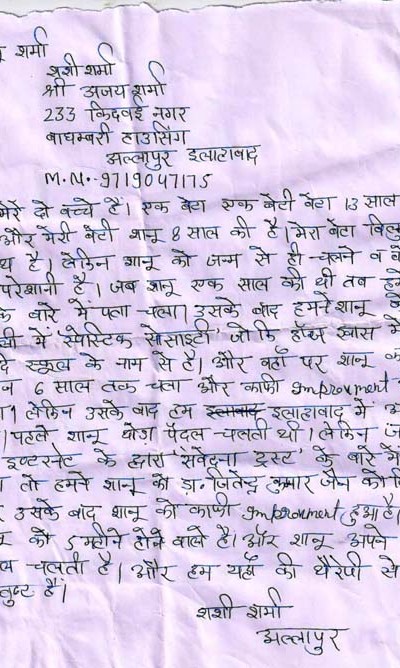 शर्मा
शशी शर्मा
श्री अजय शर्मा
233 किदवई नगर
बाघम्बरी हाउसिंग
अल्लापुर इलाहाबाद
M.N.-9719047175
मेरे दो बच्चे है। एक बेटा एक बेटी बेटा 13 साल
और मेरी बेटी शानू 8 साल की है। मेरा बेटा
है। लेकिन शानू को जन्म से ही चलने व
परेशानी है। जब शानू एक साल की थी तब
के बारे में पता चला। उसके बाद हमने शानू
में 'स्पेस्टिक सोसाइटी' जो कि हौज खास में
स्कूल के नाम से है। और वहाँ पर शानू
6 साल तक चला और काफी improvment
लेकिन उसके बाद हम इलाहाबाद में
। पहले शानू थोडा पैदल चलती थी। लेकिन
इण्टरनेट के द्वारा 'संवेदना ट्रस्ट' के बारे में
तो हमने शानू को डा. जितेन्द्र कुमार जैन को
उसके बाद शानू को काफी improvment हुआ है।
को 5 महीने होने वाले है। और शानू अपने
चलती है। और हम यहाँ की थैरेपी से
है।
शशी शर्मा
अल्लापुर